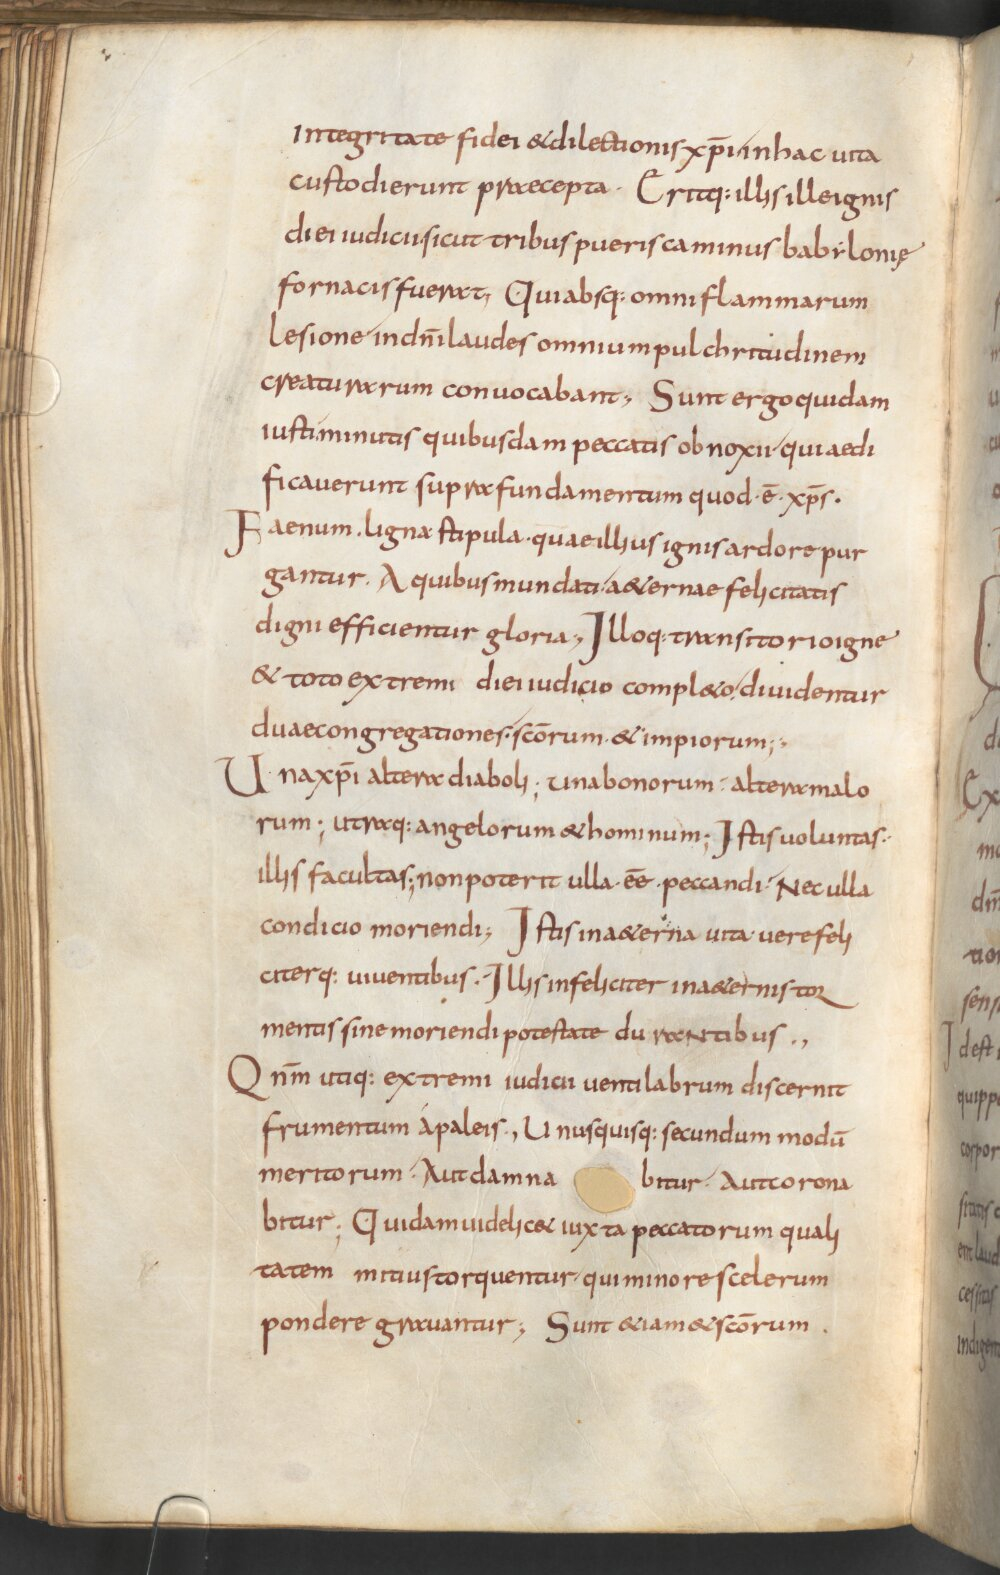 integritate fidei & dilectionis xp̄i in hac uita
custodierunt praecepta. Eritq: illis ille ignis
diei iudicii sicut tribus pueris caminus babylonię
fornacis fuerat; Qui absq: omni flammarum
lesione in dn̄i laudes omnium pulchritudinem
creaturarum convocabant; Sunt ergo quidam
iusti minutis quibusdam peccatis obnoxii· qui aedi
ficauerunt supra fundamentum quod·ē·xp̄s.
Faenum. ligna stipula· quae illius ignis ardore pur
gantur. A quibus mundati a&ernae felicitatis
digni efficientur gloria; Illoq: transitorio igne
& toto extremi diei iudicio compl&o, diuidentur
duae congregationes· scōrum· & impiorum;
Una xp̄i altera diaboli; una bonorum· altera malo
rum; utraq: angelorum & hominum; Istis uoluntas·
illis facultas; non poterit ulla·ēē·peccandi· Nec ulla
condicio moriendi; Istis in a&erna uita uere feli
citerq: uiuentibus. Illis infeliciter in a&ernis tor
mentis sine moriendi potestate durantibus.,
Qn̄m utiq: extremi iudicii uentilabrum discernit
frumentum a paleis., Unusquisq: secundum modū
meritorum· Aut damna bitur· Aut corona
bitur; Quidam uidelic& iuxta peccatorum quali
tatem mitius torquentur· qui minore scelerum
pondere grauantur; Sunt &iam & scōrum.